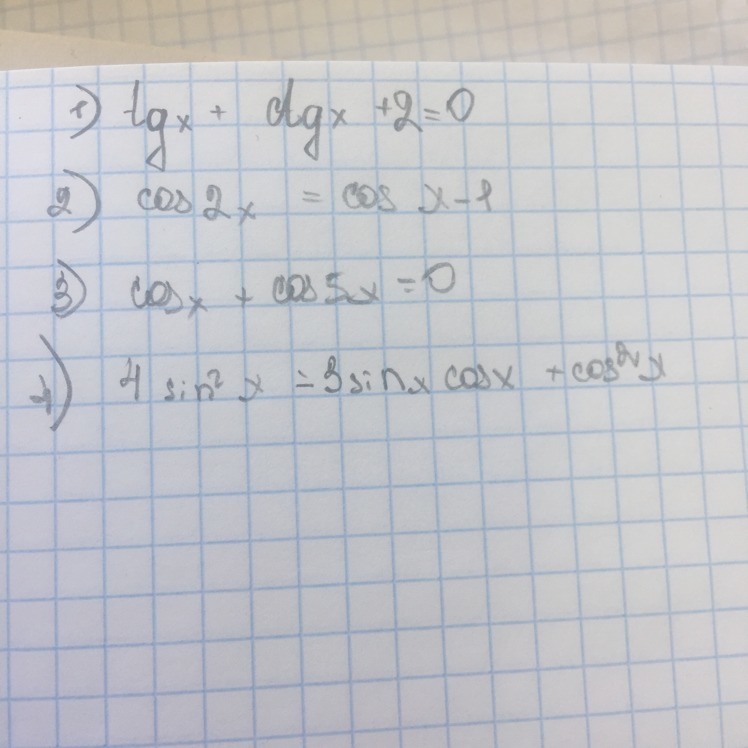 1) tgx + ctgx +2=0
2) cos2x = cos x-1
3) cosx + cos5x =0
4) 4 sin² x = 3sinx cosx + cos²x